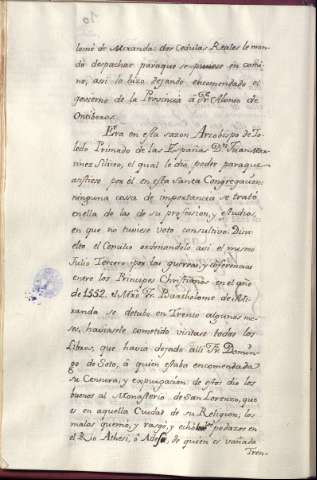 lomé de Miranda: dos Cedulas Reales le man-
dó despachar paraque se pusiese en cami-
no, asi lo hizo dejando encomendado el
govierno de la Provincia á Fr. Alonso de
Ontiberos.
Era en esta sazon Arzobispo de To-
ledo Primado de las Españas Dn. Juan Mar-
tinez Siliceo, el qual le dio poder paraque
asistiese por él en esta Santa Congregacion:
ninguna cosa de importancia se trató
en ella de las de su profesion, y estudios
en que no tuviese voto consultivo. Disol-
viose el Concilio ordenandolo asi el mesmo
Julio Tercero por las guerras, y diferencias
entre los Principes Christianos en el año
de 1552. el Mro. Fr. Bartholome de Mi-
randa se detubo en Trento algunos me-
ses, haviasele cometido visitase todos los
Libros, que havia dejado alli Fr. Domin-
go de Soto, á quien estaba encomendada
su Censura, y expurgacion: de estos dio los
buenos al Monasterio de San Lorenzo, que
es en aquella Ciudad de su Religion; los
malos quemó, y rasgó, y echó pedazos en
el Rio Athesi, ó Adese, de quien es vañada
Tren-